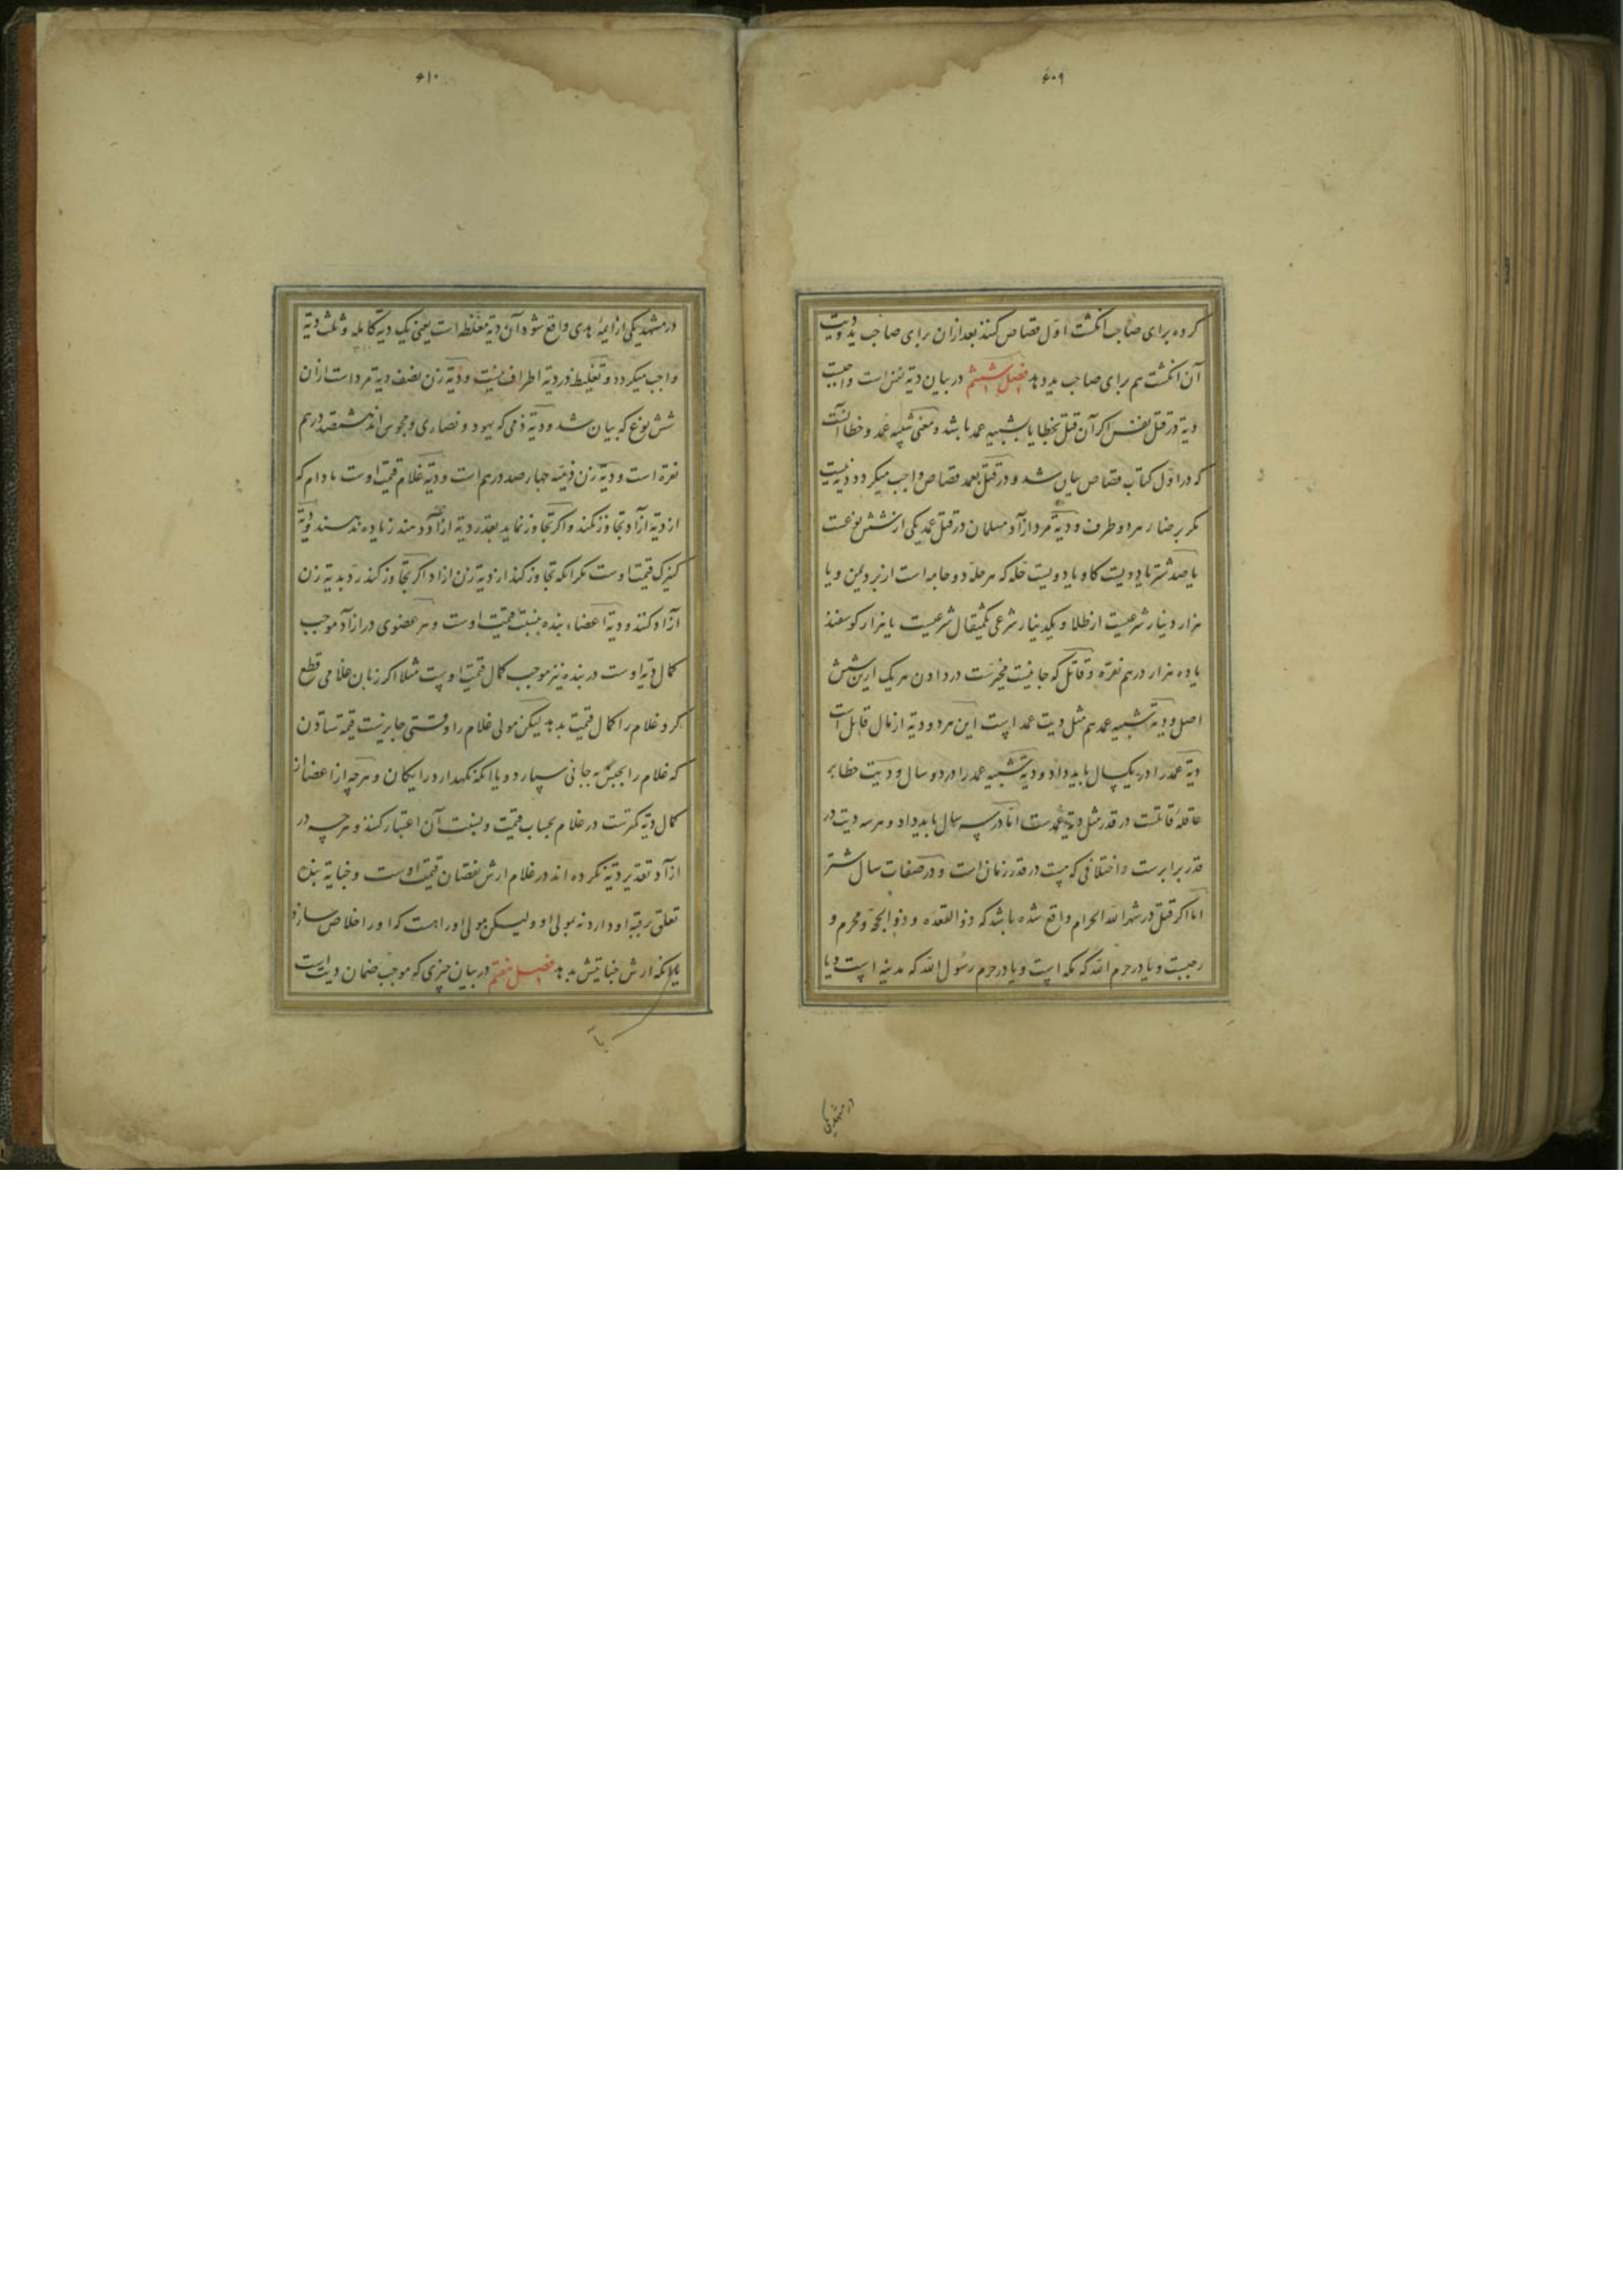 ۶۰۹
کرده برای صاحب انکشت اول قصاص کنند بعد ازان برای صاحب ید و دیت
آن انکشت هم برای صاحب ید بدهد فصل ششم در بیان دیة نفس است واجبست
دیة در قتل نفس اکر آن قتل بخطا یا بشبیه عمد باشد و معنی شبیه عمد و خطا آنست
که در اول کتاب قصاص بیان شد و در قتل بعمد قصاص واجب میکردد و دیة نیست
مکر برضاء هر دو طرف و دیة مرد ازآد مسلمان در قتل عمد یکی از شش نوعست
یا صد شتر یا دویست کاو یا دویست حله که هر حله دو جامه است از برد یمن و یا
هزار دینار شرعیست از طلا و یکدینار شرعی یکمثقال شرعیست یا هزار کوسفند
یا ده هزار درهم نقره و قاتل که جانیست مخیرست در دادن هر یک ازین شش
اصل و دیة شبیه عمد هم مثل دیت عمد است این هر دو دیة از مال قاتل است
دیة عمد را در یکسال باید داد و دیة شبیه عمد را در دو سال و دیت خطا بر
عاقلهٔ قاتلست در قدر مثل دیة عمدست اما در سه سال باید داد و هر سه دیت در
قدر برابرست و اختلافی که هست در قدر زمان است و در صفات سال شتر
اما اکر قتل در شهر الله الحرام واقع شده باشد که ذو القعده و ذو الحجة و محرم و
رجبست و یا در حرم الله که مکه است و یا در حرم رسول الله که مدینه است و یا
در مشهد یکی
۶۱۰
در مشهد یکی از ایمهٔ هدی واقع شود آن دیة مغلظه است یعنی یک دیة کامله و ثلث دیة
واجب میکردد و تغلیظ در دیة اطراف نیست و دیة زن نصف دیة مرد است ازان
شش نوع که بیان شد و دیة ذمی که یهود و نصاری و مجوس اند هشتصد درهم
نقره است و دیة زن ذمیة چهار صد درهم است و دیة غلام قیمت اوست مادام که
از دیة ازآد تجاوز نکند و اکر تجاوز نماید بقدر دیة ازآد دهند زیاده ندهند و دیة
کنیزک قیمت اوست مکر انکه تجاوز کند از دیة زن ازاد اکر تجاوز کند رد بدیة زن
آزاد کنند و دیة اعضاء بنده بنسبت قیمت اوست و هر عضوی در ازآد موجب
کمال دیة اوست در بنده نیز موجب کمال قیمت اوست مثلا اکر زبان غلامی قطع
کرد غلام را کمال قیمت بدهد لیکن مولی غلام را وقتی جایزست قیمة ستادن
که غلام را بجنس به جانی سپارد و یا انکه نکهدارد رایکان و هرچه از اعضا از
کمال دیة کمترست در غلام بحساب قیمت و بنسبت آن اعتبار کنند و هرچه در
ازآد تقدیر دیة نکرده اند در غلام ارش نقصان قیمت اوست و جنایة بنده
تعلق برقبهٔ او دارد نه بمولی او ولیکن مولی او را هست که او را خلاص سازد
یا انکه ارش جنایتش بدهد فصل هفتم در بیان چیزی که موجب ضمان دیت است